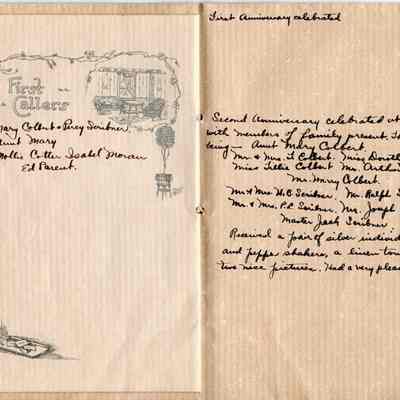 First
Callers
Mary Colbert & Percy Scribner
Aunt Mary
Mollie Cotter Isabel Moran
Ed Parent.
First Anniversary celebrated
Second Anniversary celebrated at
with members of family present. Th
being — Aunt Mary Colbert.
Mr. & Mrs. T. Colbert. Miss Doroth
Miss Tillie Colbert Mr. Arthu
Mr. Harry Colbert.
Mr & Mrs H.C. Scribner, Mr. Ralph S
Mr. & Mrs. P.C. Scribner, Mr. Joseph
Master Jack Scribner
Received a pair of silver individ
and pepper shakers, a linen tow
two nice pictures. Had a very pleas